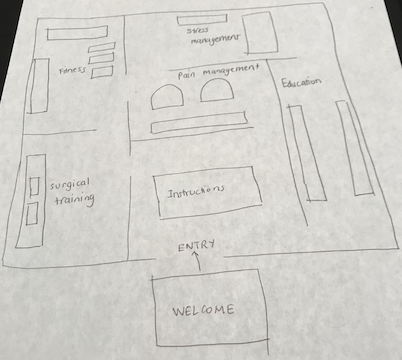 stress
management
Fitness
Pain management
Education
surgical
training
Instructions
ENTRY
WELCOME